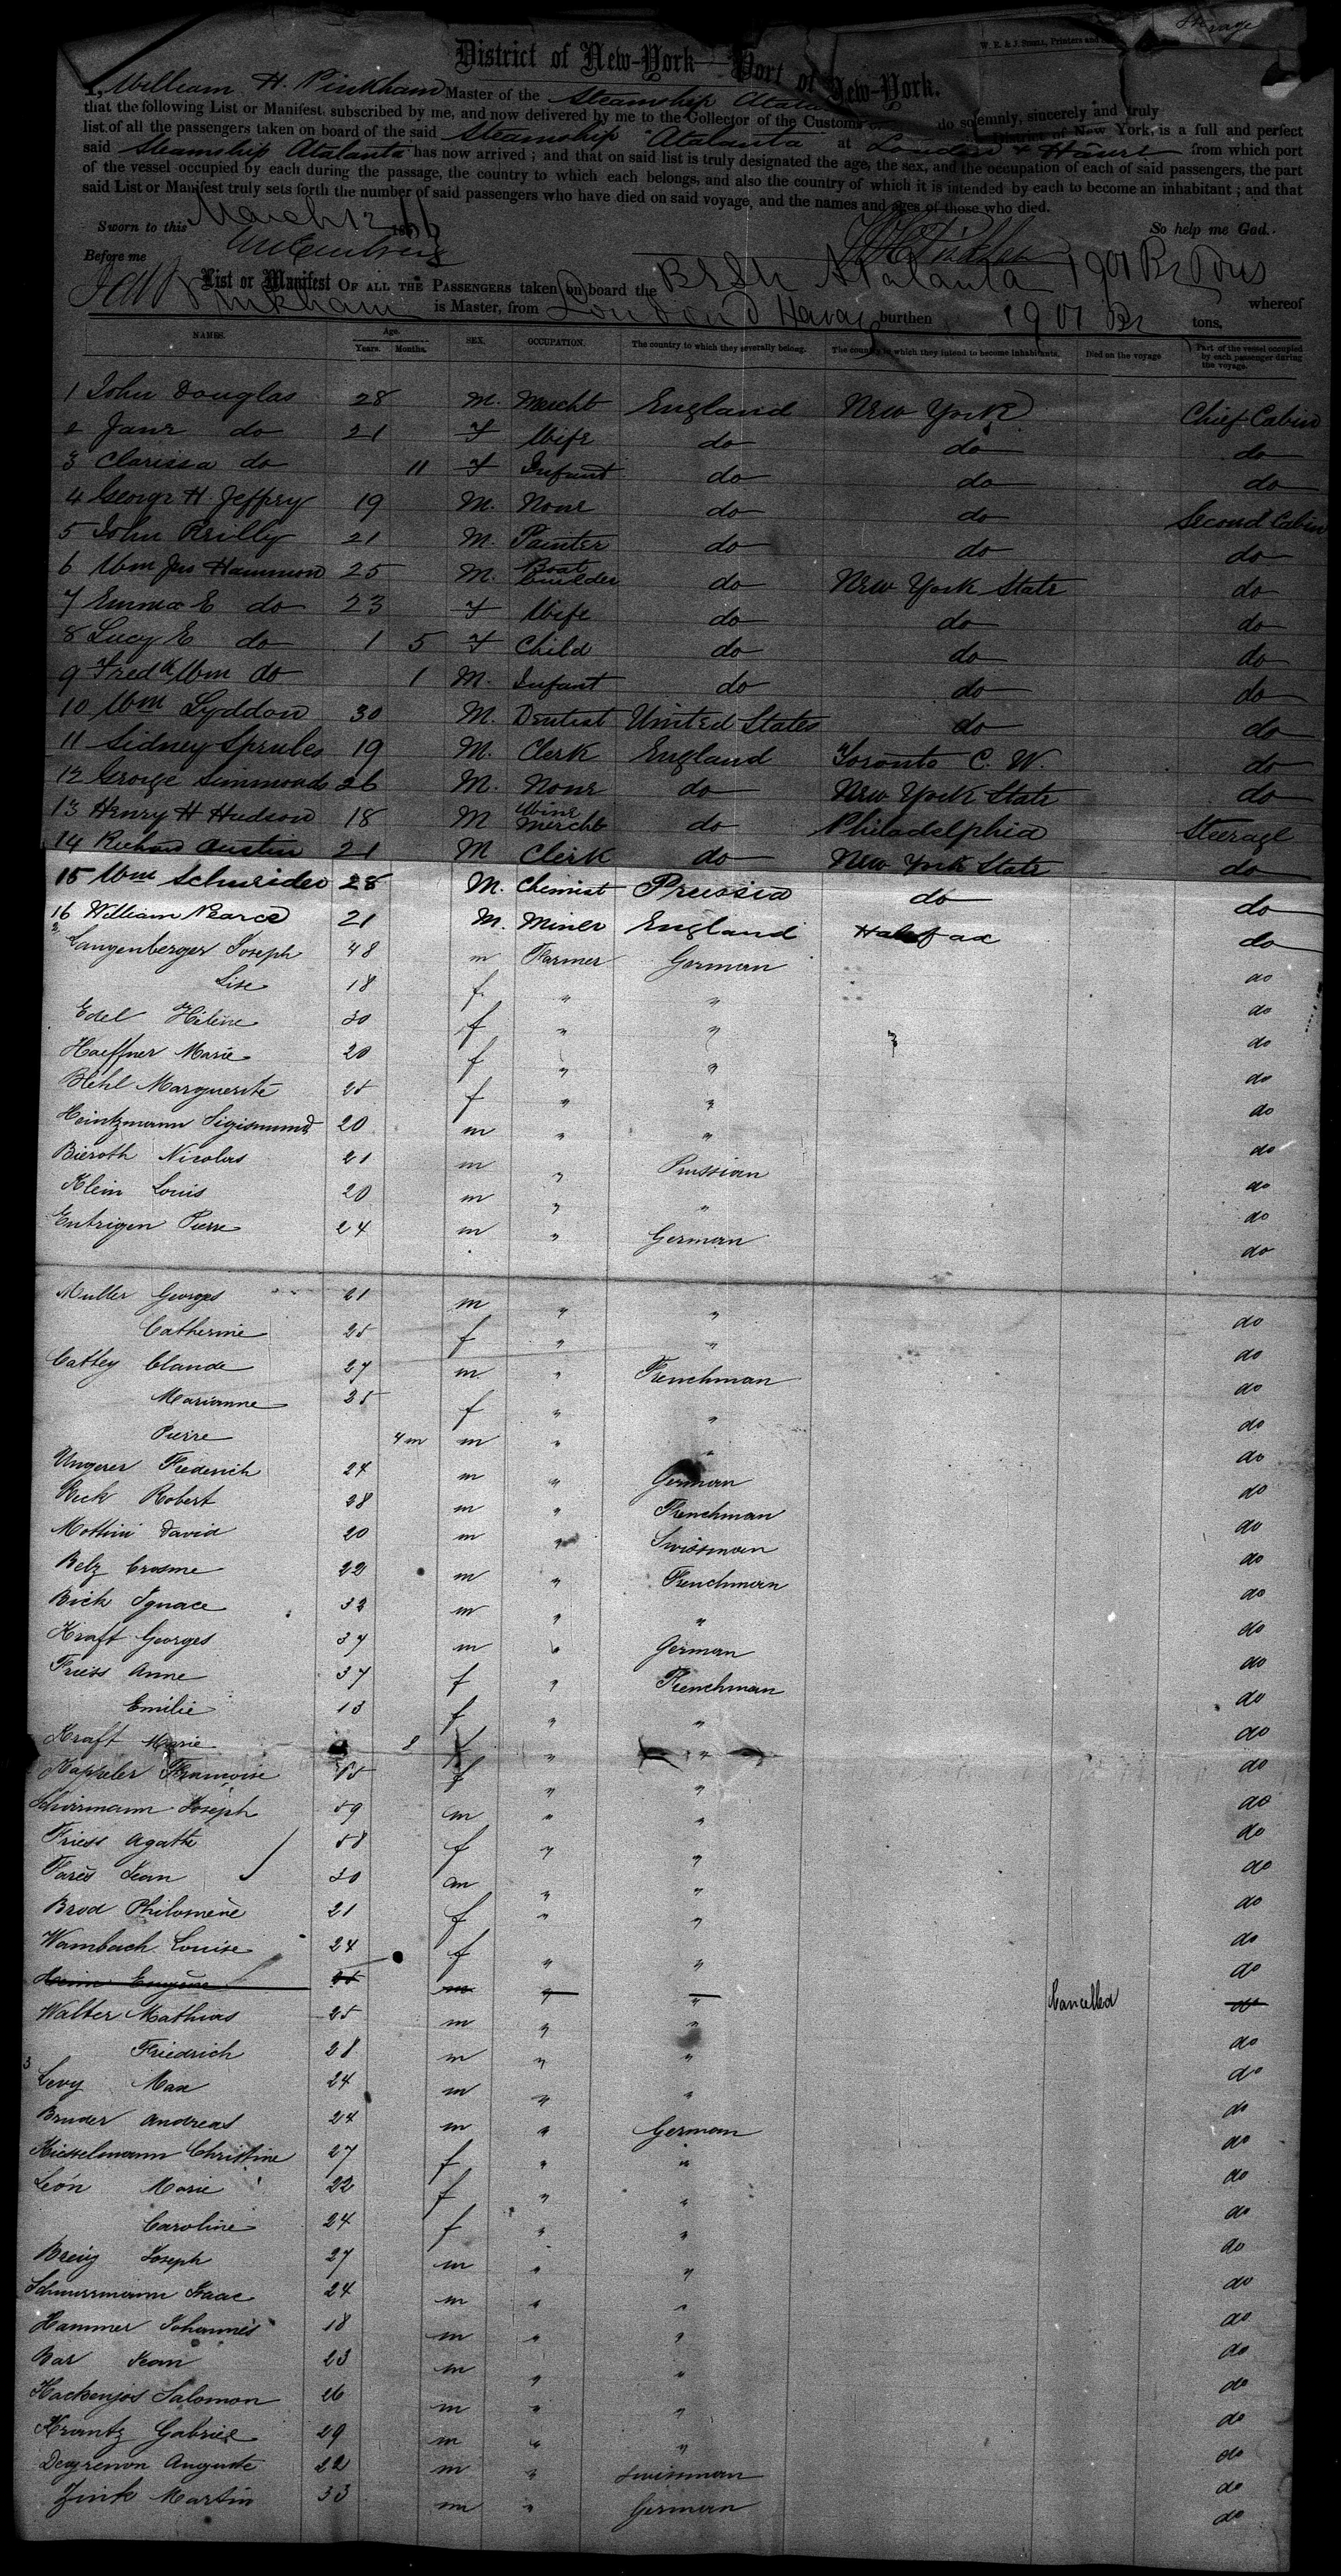 Steerage
W. E. & J. Sibell, Printers and
District of New-York—Port of New-York.
I, William H. Pinkham Master of the Steamship Atala do solemnly, sincerely and truly
that the following List or Manifest, subscribed by me, and now delivered by me to the Collector of the Customs District of New York, is a full and perfect
list of all the passengers taken on board of the said Steamship "Atalanta at London & Havre from which port
said Steamship Atalanta has now arrived; and that on said list is truly designated the age, the sex, and the occupation of each of said passengers, the part
of the vessel occupied by each during the passage, the country to which each belongs, and also the country of which it is intended by each to become an inhabitant; and that
said List or Manifest truly sets forth the number of said passengers who have died on said voyage, and the names and ages of those who died.
Sworn to this March 12 1866 So help me God.
Before me
List or Manifest OF ALL THE PASSENGERS taken on board the Br SS Atalanta 1901 Br Tons whereof
Pinkham is Master, from London & Havre burthen 1901 Br tons,
NAMES. Age. Years. Months. SEX. OCCUPATION. The country to which they severally belong. The country to which they intend to become inhabitants. Died on the voyage Part of the vessel occupied by each passenger during the voyage.
1 John Douglas 28 M. Mercht England New York Chief Cabin
2 Jane do 21 F Wife do do do
3 Clarissa do 11 F Infant do do do
4 George H. Jeffry 19 M. None do do Second Cabin
5 John Reilly 21 M. Painter do do do
6 Wm Jas Hammond 25 M. Boat builder do New York State do
7 Emma E do 23 F Wife do do do
8 Lucy E do 1 5 F Child do do do
9 Fredk Wm do 1 M. Infant do do do
10 Wm Lyddon 30 M. Dentist United States do do
11 Sidney Sprules 19 M. Clerk England Toronto C. W. do
12 George Simmonds 26 M. None do New York State do
13 Henry H Hudson 18 M Wine Mercht do Philadelphia Steerage
14 Richard Austin 21 M Clerk do New York State do
15 Wm Schneider 28 M. Chemist Prussia do do
16 William Pearce 21 M. Miner England Halifax do
Langenberger Joseph 48 m Farmer German do
Lise 18 f " " do
Edel Hélène 30 f " " do
Haeffner Marie 20 f " " do
Blehl Marguerite 25 f " " do
Heintzmann Sigismund 20 m " " do
Bieroth Nicolas 21 m " Prussian do
Klein Louis 20 m " " do
Entrigen Pierre 24 m " German do
Muller Georges 21 m " " do
Catherine 25 f " " do
Cattey Claude 27 m " Frenchman do
Marianne 35 f " " do
Pierre 4 m m " " do
Ungerer Frederich 24 m " German do
Rick Robert 28 m " Frenchman do
Mottini David 20 m " Swissman do
Belz Crosme 22 m " Frenchman do
Bick Ignace 32 m " " do
Kraft Georges 37 m " German do
Friess Anne 37 f " Frenchman do
Emilie 13 f " " do
Kraft Marie 8 f " " do
Kappeler Françoise 45 f " " do
Schirrmann Joseph 59 m " " do
Friess Agathe 58 f " " do
Farès Jean 30 m " " do
Brod Philomène 21 f " " do
Wambach Louise 24 f " " do
Heim Eugène m " " Cancelled do
Walter Mathias 25 m " " do
Friedrich 28 m " " do
3 Levy Max 24 m " " do
Bruder Andreas 24 m " German do
Kiesselmann Christine 27 f " " do
Léon Marie 22 f " " do
Caroline 24 f " " do
Breig Joseph 27 m " " do
Schnurrmann Isaac 24 m " " do
Hammer Johannes 18 m " " do
Bar Jean 23 m " " do
Hackenjos Salomon 26 m " " do
Krantz Gabriel 29 m " " do
Auguste 22 m " Swissman do
Zink Martin 33 m " German do